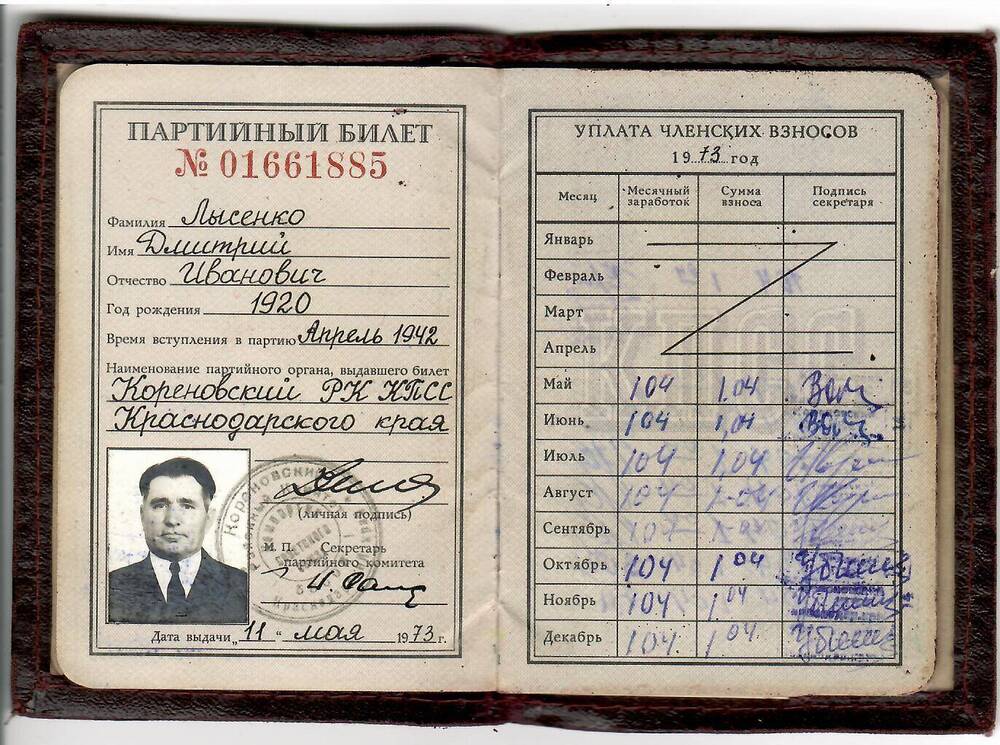 ПАРТИЙНЫЙ БИЛЕТ
№ 01661885
Фамилия Лысенко
Имя Дмитрий
Отчество Иванович
Год рождения 1920
Время вступления в партию Апрель 1942
Наименование партийного органа, выдавшего билет
Кореновский РК КПСС
Краснодарского края
(личная подпись)
М. П. Секретарь
партийного комитета
Дата выдачи „11“ мая 1973 г.
УПЛАТА ЧЛЕНСКИХ ВЗНОСОВ
1973 год
Месяц Месячный заработок Сумма взноса Подпись секретаря
Январь
Февраль
Март
Апрель
Май 104 1,04
Июнь 104 1,04
Июль 104 1,04
Август 104 1-04
Сентябрь
Октябрь 104 1 04
Ноябрь 104 1 04
Декабрь 104 1 04